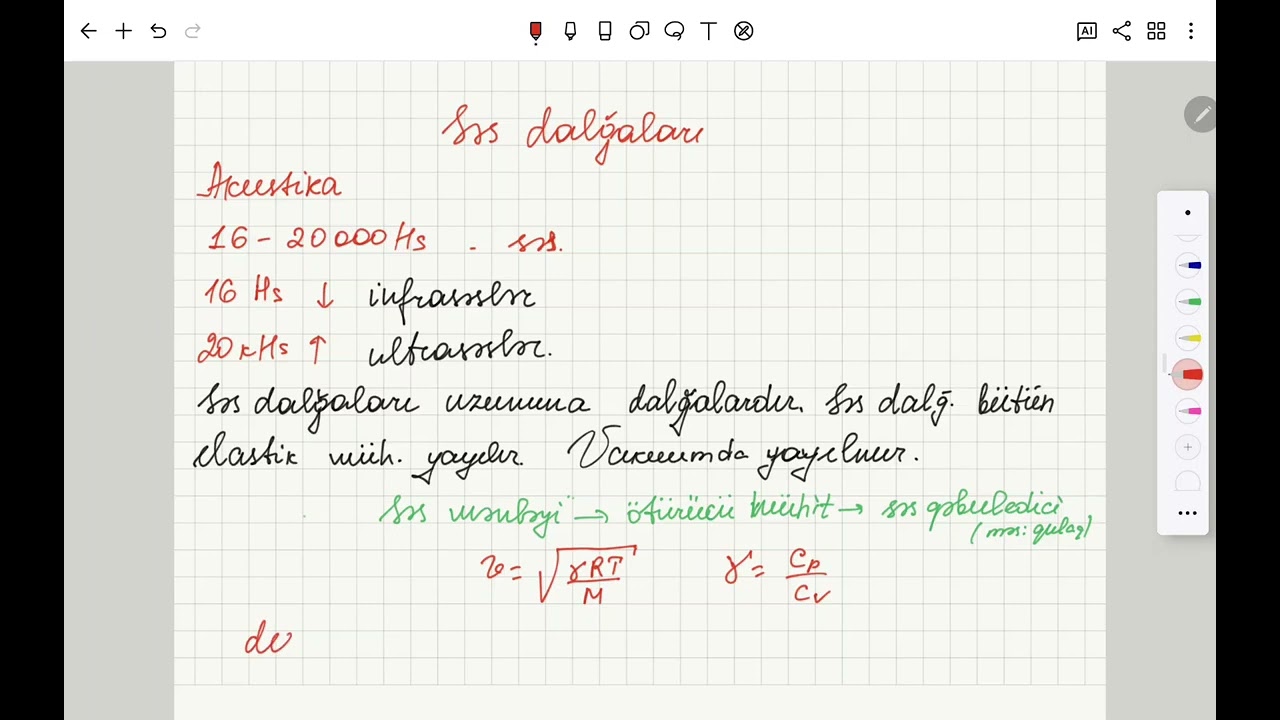 AI
T
Səs dalğaları
Akustika
16 - 20000 Hs - səs.
16 Hs ↓ infrasəslər
20 kHs ↑ ultrasəslər.
Səs dalğaları uzununa dalğalardır. Səs dalğ. bütün
elastik müh. yayılır. Vakuumda yayılmır.
Səs mənbəyi → ötürücü mühit → səs qəbuledici
(məs: qulaq)
v = √(γRT/M) γ = Cp/Cv
de